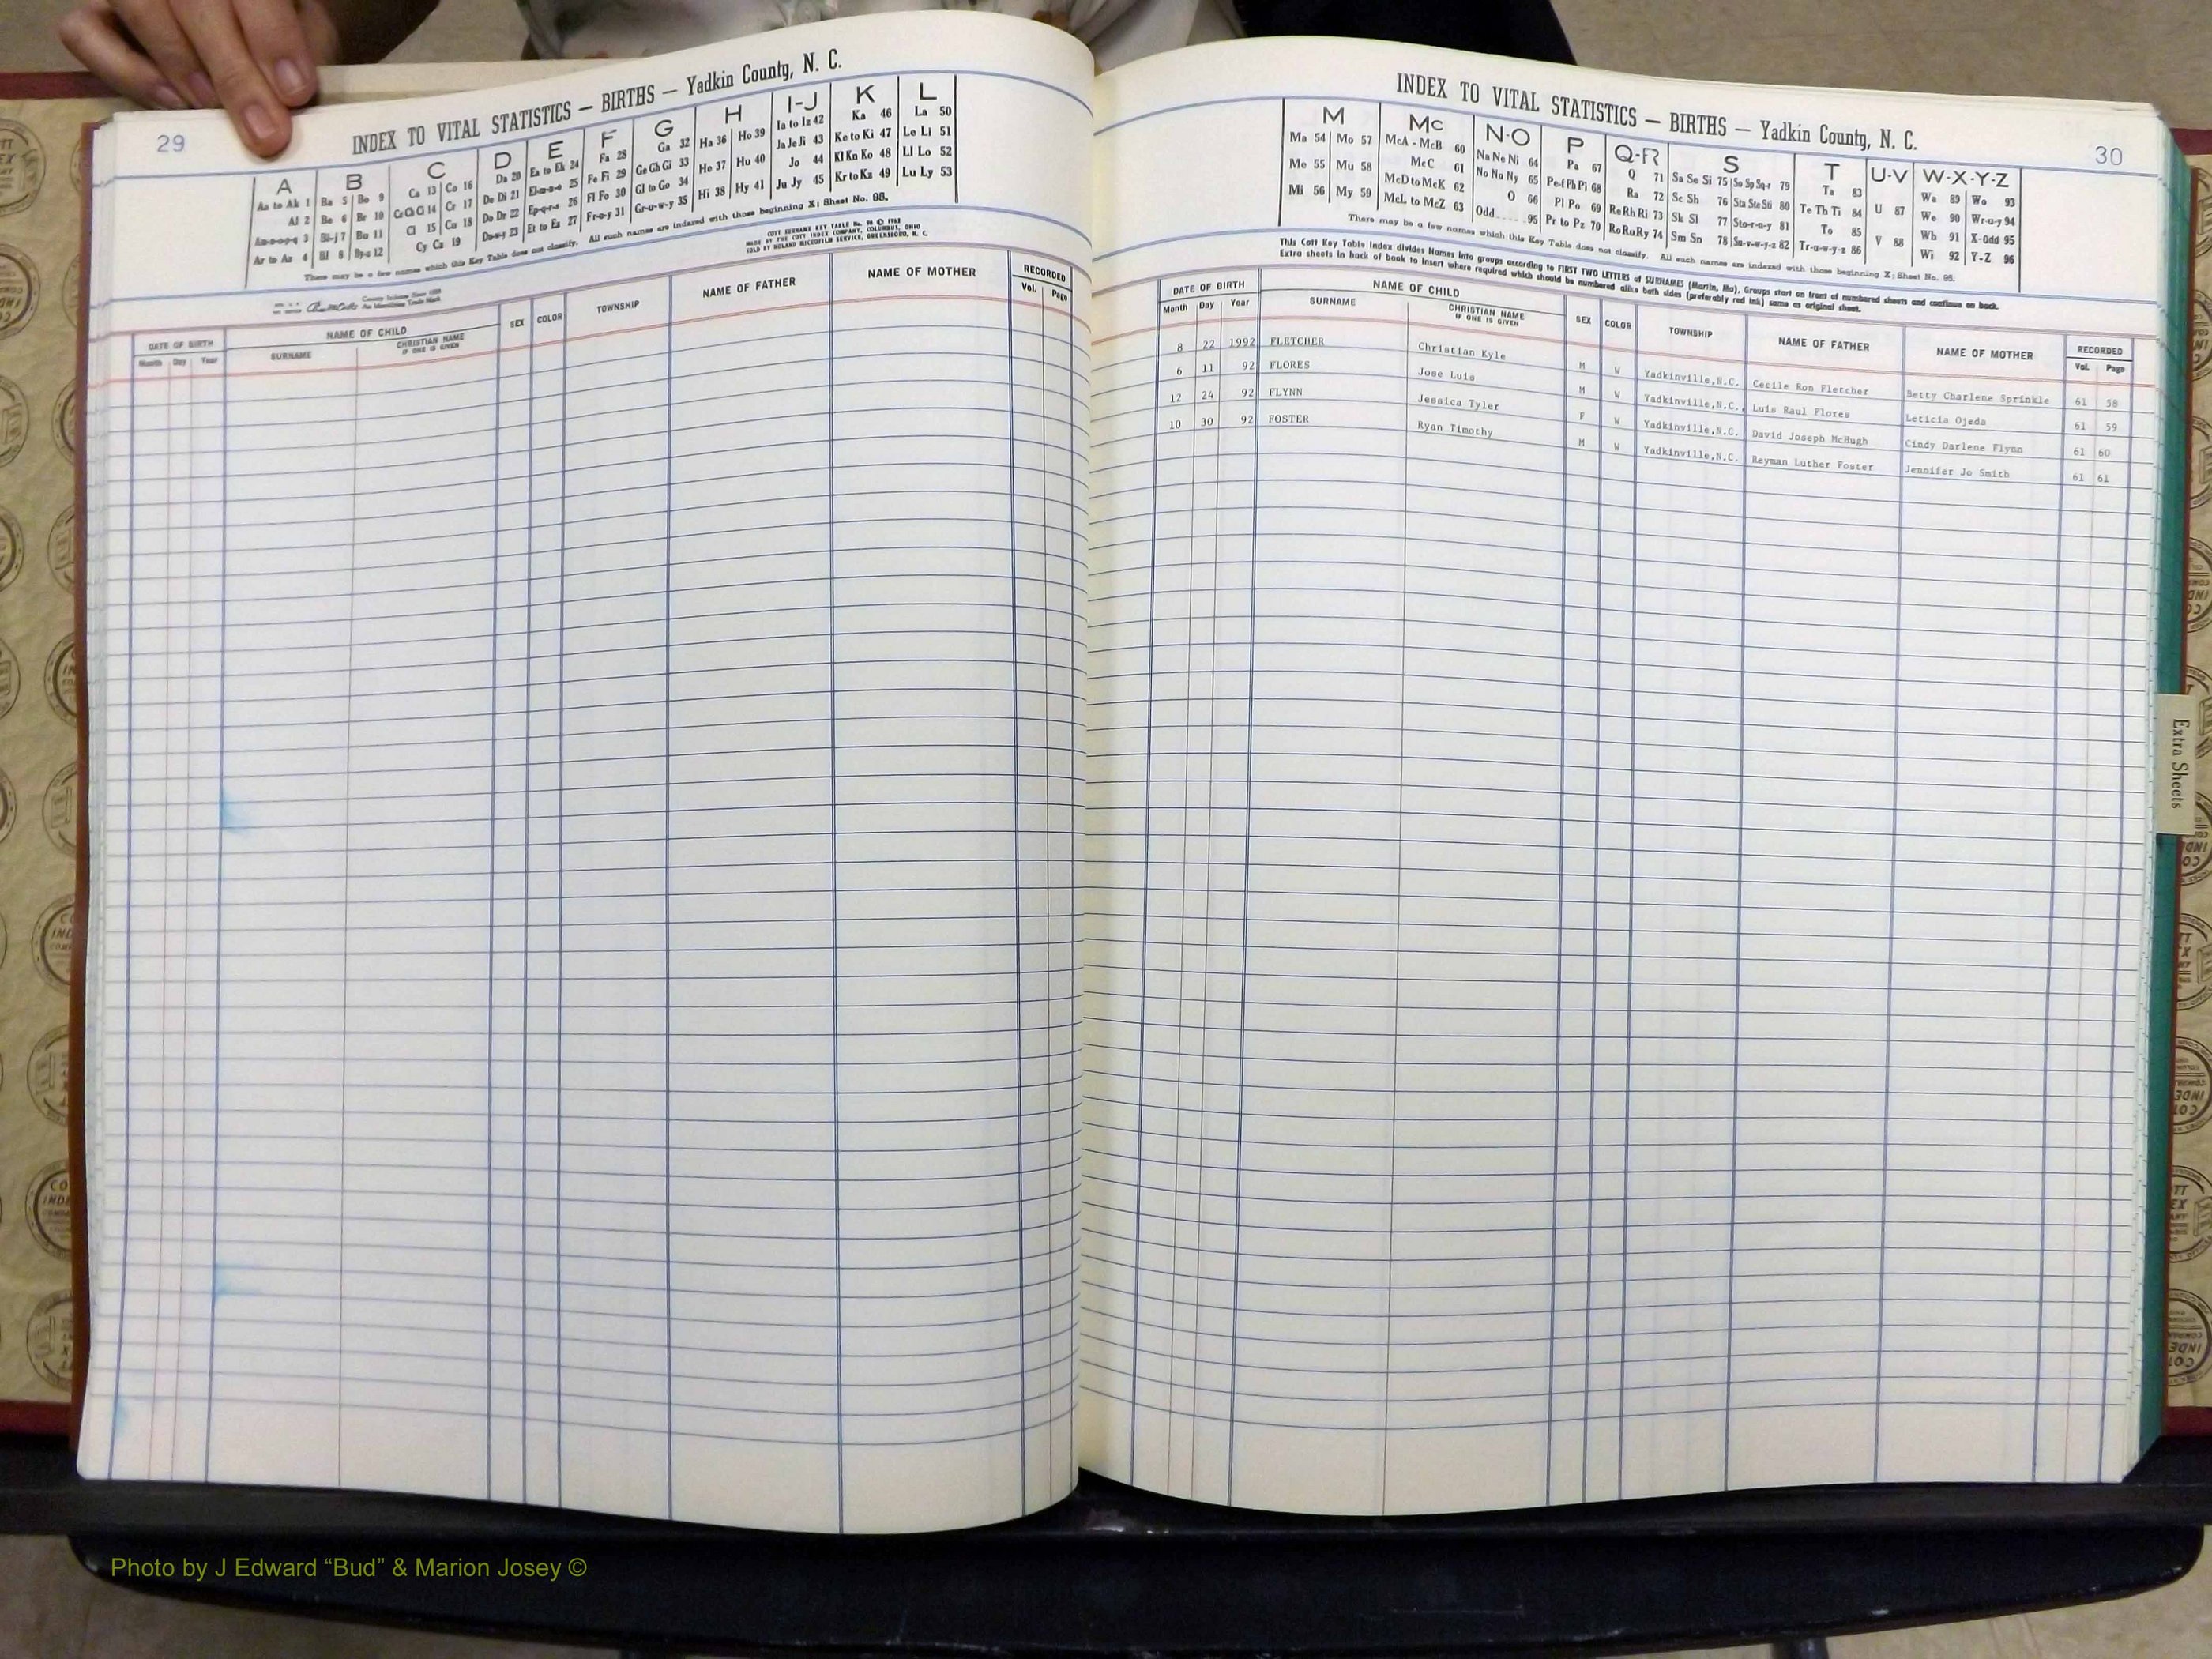 29
INDEX TO VITAL STATISTICS — BIRTHS — Yadkin County, N. C.
A B C D E F G H I-J K L
Aa to Ak 1 Ba 5 Bo 9 Ca 13 Co 16 Da 20 Ea to Ek 24 Fa 28 Ga 32 Ha 36 Ho 39 Ia to Iz 42 Ka 46 La 50
Al 2 Be 6 Br 10 Ce Ch Ci 14 Cr 17 De Di 21 El-m-n-o 25 Fe Fi 29 Ge Gh Gi 33 He 37 Hu 40 Ja Je Ji 43 Ke to Ki 47 Le Li 51
Am-n-o-p-q 3 Bi-j 7 Bu 11 Cl 15 Cu 18 Do Dr 22 Ep-q-r-s 26 Fl Fo 30 Gl to Go 34 Hi 38 Hy 41 Jo 44 Kl Kn Ko 48 Ll Lo 52
Ar to Az 4 Bl 8 By-z 12 Cy Cz 19 Du-w-y 23 Et to Ez 27 Fr-o-y 31 Gr-u-w-y 35 Ju Jy 45 Kr to Kz 49 Lu Ly 53
There may be a few names which this Key Table does not classify. All such names are indexed with those beginning X; Sheet No. 95.
COTT SURNAME KEY TABLE
MADE BY THE COTT INDEX COMPANY, COLUMBUS, OHIO
SOLD BY ROLAND MICROFILM SERVICE, GREENSBORO, N. C.
DATE OF BIRTH NAME OF CHILD SEX COLOR TOWNSHIP NAME OF FATHER NAME OF MOTHER RECORDED
Month Day Year SURNAME CHRISTIAN NAME IF ONE IS GIVEN Vol. Page
30
INDEX TO VITAL STATISTICS — BIRTHS — Yadkin County, N. C.
M Mc N-O P Q-R S T U-V W-X-Y-Z
Ma 54 Mo 57 McA - McB 60 Na Ne Ni 64 Pa 67 Q 71 Sa Se Si 75 So Sp Sq-r 79 Ta 83 U 87 Wa 89 Wo 93
Me 55 Mu 58 McC 61 No Nu Ny 65 Pe-f Ph Pi 68 Ra 72 Sc Sh 76 Sta Ste Sti 80 Te Th Ti 84 V 88 We 90 Wr-u-y 94
Mi 56 My 59 McD to McK 62 O 66 Pl Po 69 Re Rh Ri 73 Sk Sl 77 Sto-r-u-y 81 To 85 Wh 91 X-Odd 95
McL to McZ 63 Odd 95 Pr to Pz 70 Ro Ru Ry 74 Sm Sn 78 Su-v-w-y-z 82 Tr-u-w-y-z 86 Wi 92 Y-Z 96
There may be a few names which this Key Table does not classify. All such names are indexed with those beginning X; Sheet No. 95.
This Cott Key Table Index divides Names into groups according to FIRST TWO LETTERS of SURNAMES (Martin, Ma), Groups start on front of numbered sheets and continue on back.
Extra sheets in back of book to insert where required which should be numbered alike both sides (preferably red ink) same as original sheet.
DATE OF BIRTH NAME OF CHILD SEX COLOR TOWNSHIP NAME OF FATHER NAME OF MOTHER RECORDED
Month Day Year SURNAME CHRISTIAN NAME IF ONE IS GIVEN Vol. Page
8 22 1992 FLETCHER Christian Kyle M W Yadkinville,N.C. Cecile Ron Fletcher Betty Charlene Sprinkle 61 58
6 11 92 FLORES Jose Luis M W Yadkinville,N.C. Luis Raul Flores Leticia Ojeda 61 59
12 24 92 FLYNN Jessica Tyler F W Yadkinville,N.C. David Joseph McHugh Cindy Darlene Flynn 61 60
10 30 92 FOSTER Ryan Timothy M W Yadkinville,N.C. Reyman Luther Foster Jennifer Jo Smith 61 61
Extra Sheets
Photo by J Edward “Bud” & Marion Josey ©